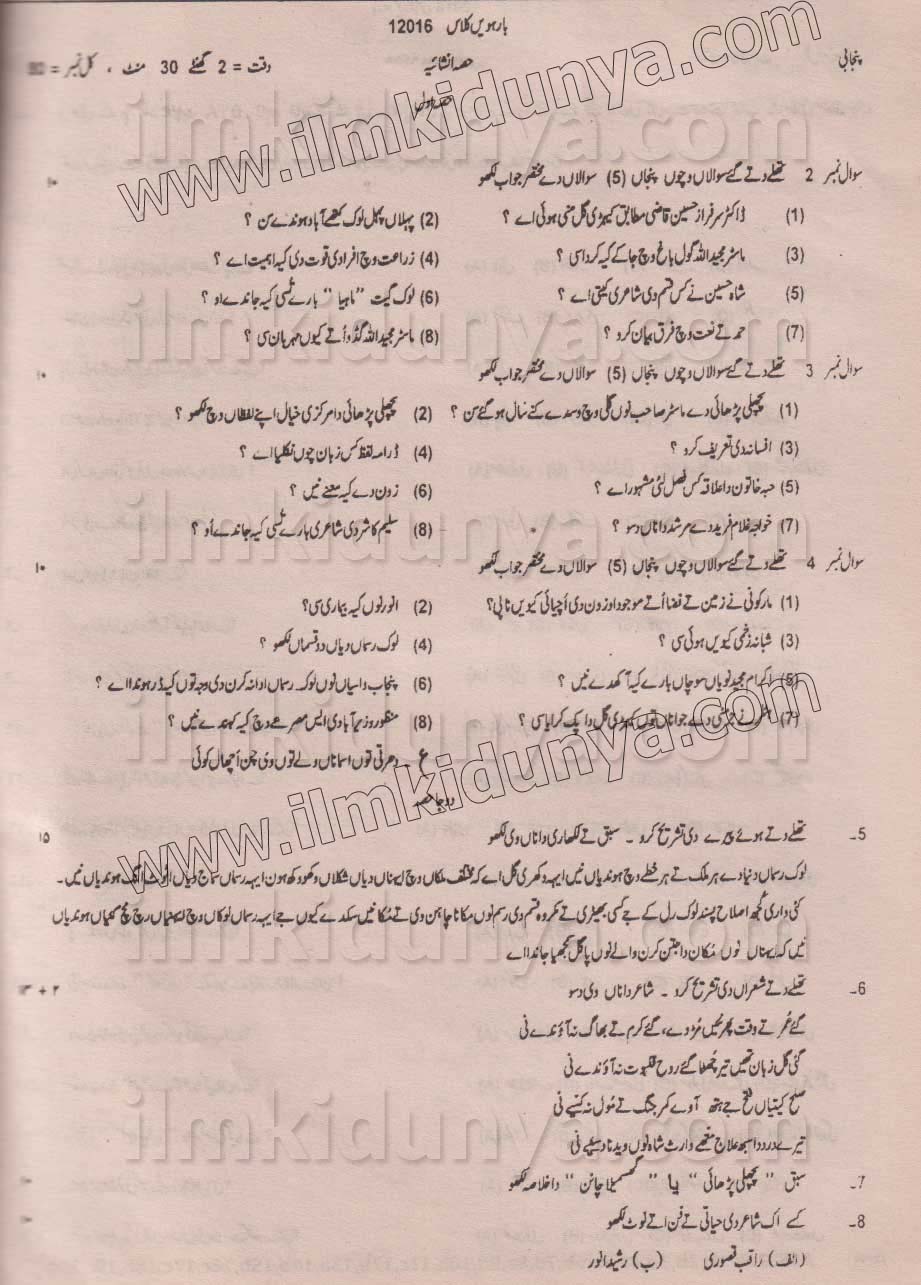 بارہویں کلاس 12016
پنجابی
حصہ انشائیہ
وقت = 2 گھنٹے 30 منٹ ، کل نمبر =
حصہ اول
سوال نمبر 2 تھلے دتے گئے سوالاں وچوں پنجاں (5) سوالاں دے مختصر جواب لکھو ۱۰
(1) ڈاکٹر سرفراز حسین قاضی مطابق کیہڑی گل منی ہوئی اے ؟ (2) پہلاں پہل لوک کتھے آباد ہوندے سن ؟
(3) ماسٹر مجید اللہ گول باغ وچ جا کے کیہ کردا سی ؟ (4) زراعت وچ افرادی قوت دی کیہ اہمیت اے ؟
(5) شاہ حسین نے کس قسم دی شاعری کیتی اے ؟ (6) لوک گیت "ماہیا" بارے تُسی کیہ جاندے او ؟
(7) حمد تے نعت وچ فرق بیان کرو ؟ (8) ماسٹر مجید اللہ گڈو اُتے کیوں مہربان سی ؟
سوال نمبر 3 تھلے دتے گئے سوالاں وچوں پنجاں (5) سوالاں دے مختصر جواب لکھو ۱۰
(1) پچھلی پڑھائی دے ماسٹر صاحب نوں گلی وچ وسدے کنے سال ہو گئے سن ؟ (2) پچھلی پڑھائی دا مرکزی خیال اپنے لفظاں وچ لکھو ؟
(3) افسانہ دی تعریف کرو ؟ (4) ڈرامہ لفظ کس زبان چوں نکلیا اے ؟
(5) حبہ خاتون دا علاقہ کس فصل لئی مشہور اے ؟ (6) زون دے کیہ معنے نیں ؟
(7) خواجہ غلام فرید دے مرشد دا ناں دسو ؟ (8) سلیم کاشر دی شاعری بارے تُسی کیہ جاندے اُو ؟
سوال نمبر 4 تھلے دتے گئے سوالاں وچوں پنجاں (5) سوالاں دے مختصر جواب لکھو ۱۰
(1) مارکونی نے زمین تے فضا اُتے موجود اوزون دی اُچیائی کیویں ناپی؟ (2) انور نوں کیہ بیماری سی؟
(3) شبانہ زخمی کیویں ہوئی سی ؟ (4) لوک رسماں دیاں دو قسماں لکھو ؟
(5) اکرام مجید نویاں سوچاں بارے کیہ آکھدے نیں ؟ (6) پنجاب واسیاں نوں لوک رسماں ادا نہ کرن دی وجہ توں کیہ ڈر ہوندا اے ؟
(7) دے جواناں نوں کیہڑی گل دا پک کرایا سی ؟ (8) منظور وزیرآبادی ایس مصرعے وچ کیہ کہندے نیں ؟
ع ۔ دھرتی توں اسماناں ولے توں وی چن اُچھال کوئی
دوجا حصہ
5۔ تھلے دتے ہوئے پیرے دی تشریح کرو ۔ سبق تے لکھاری دا ناں وی لکھو ۱۵
لوک رسماں دنیا دے ہر ملک تے ہر خطے وچ ہوندیاں نیں ایہہ وکھری گل اے کہ مختلف ملکاں وچ ایہناں دیاں شکلاں وکھو وکھ ہون ایہہ رسماں سماج دیاں اٹوٹ انگ ہوندیاں نیں۔
کئی واری کُجھ اصلاح پسند لوک رل کے جے کسی بھیڑی تے مکروہ قسم دی رسم نوں مکانا چاہن وی تے مُکا نہیں سکدے کیوں جے ایہہ رسماں لوکاں وچ اینیاں رچ مچ گئیاں ہوندیاں
نیں کہ ایہناں نوں مُکان دا جتن کرن والے نوں پاگل سمجھیا جاندا اے
6۔ تھلے دتے شعراں دی تشریح کرو ۔ شاعر دا ناں وی دسو
گئے عُمر تے وقت پھر نئیں مُڑدے، گئے کرم تے بھاگ نہ آؤندے نی
گئی گل زبان تھیں تیر چھُٹا گئے روح قلبوت نہ آؤندے نی
صلح کیتیاں فتح جے ہتھ آوے کمر جنگ تے مُول نہ کسیے نی
تیرے درد دا سبھ علاج مینتھے وارث شاہ نوں ویدنا دسیے نی
7۔ سبق "پچھلی پڑھائی" یا "گھسمیلا چانن" دا خلاصہ لکھو
8۔ کسے اک شاعر دی حیاتی تے فن اتے نوٹ لکھو
(الف) راقب قصوری (ب) رشید انور
www.ilmkidunya.com
www.ilmkidunya.com
ilmkidunya.com
ilmkidunya.com
ilmkidunya.com
ilmkidunya.com
ilmkidunya.com
ilmkidunya.com